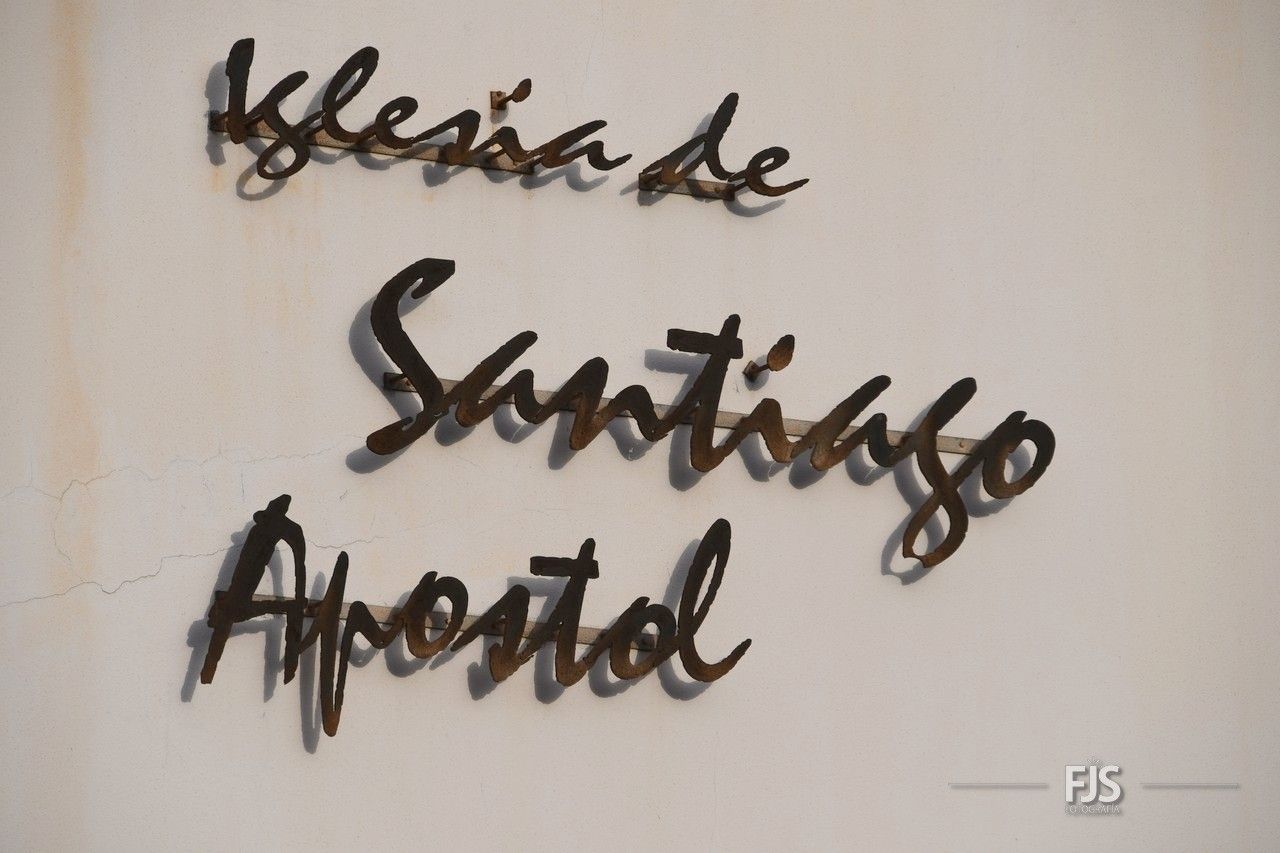 Iglesia de
Santiago
Apostol
FJS
FOTOGRAFIA